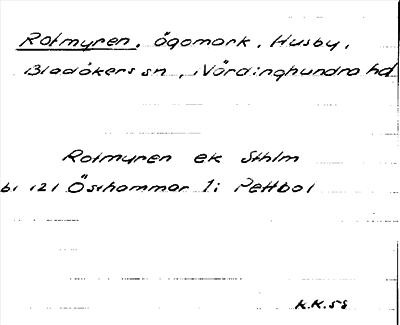 Rotmyren, ägomark, Husby,
Bladåkers sn, Närdinghundra hd
Rotmyren ek Sthlm
bl 121 Östhammar 1: Pettbol
K.K.58